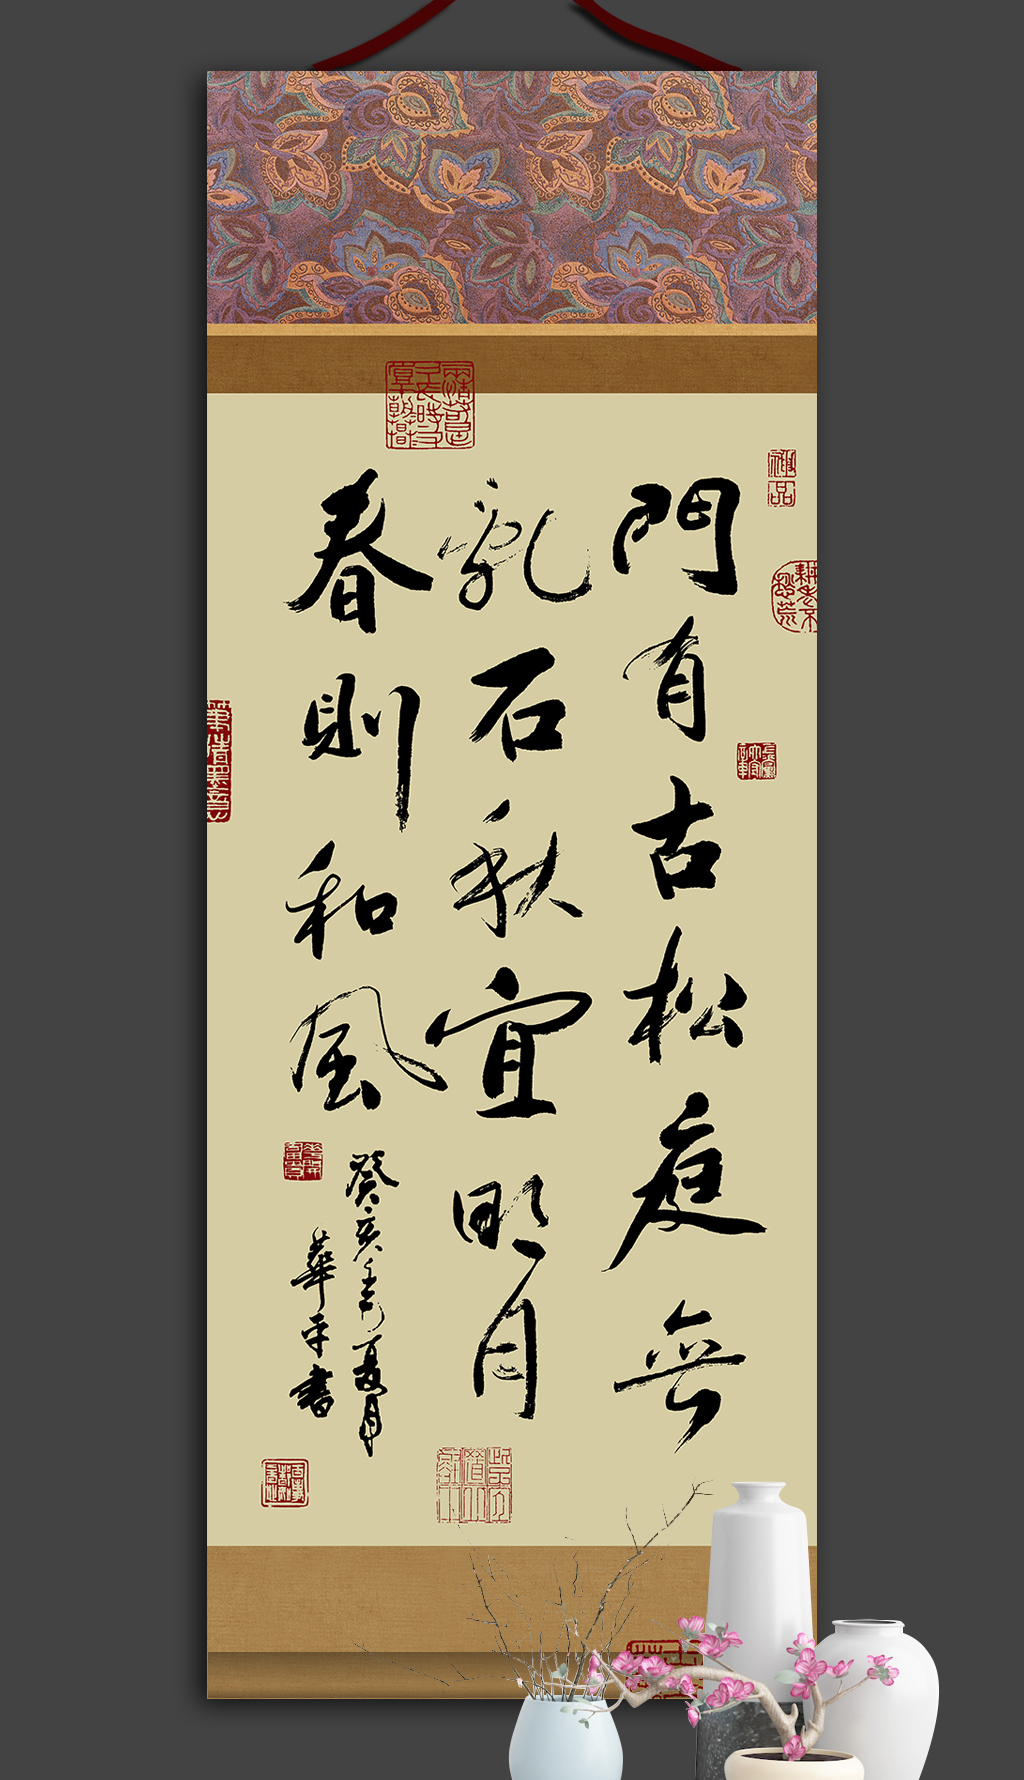 門有古松庭無
乳石秋宜明月
春則和風
癸亥年夏月
華平書
神品